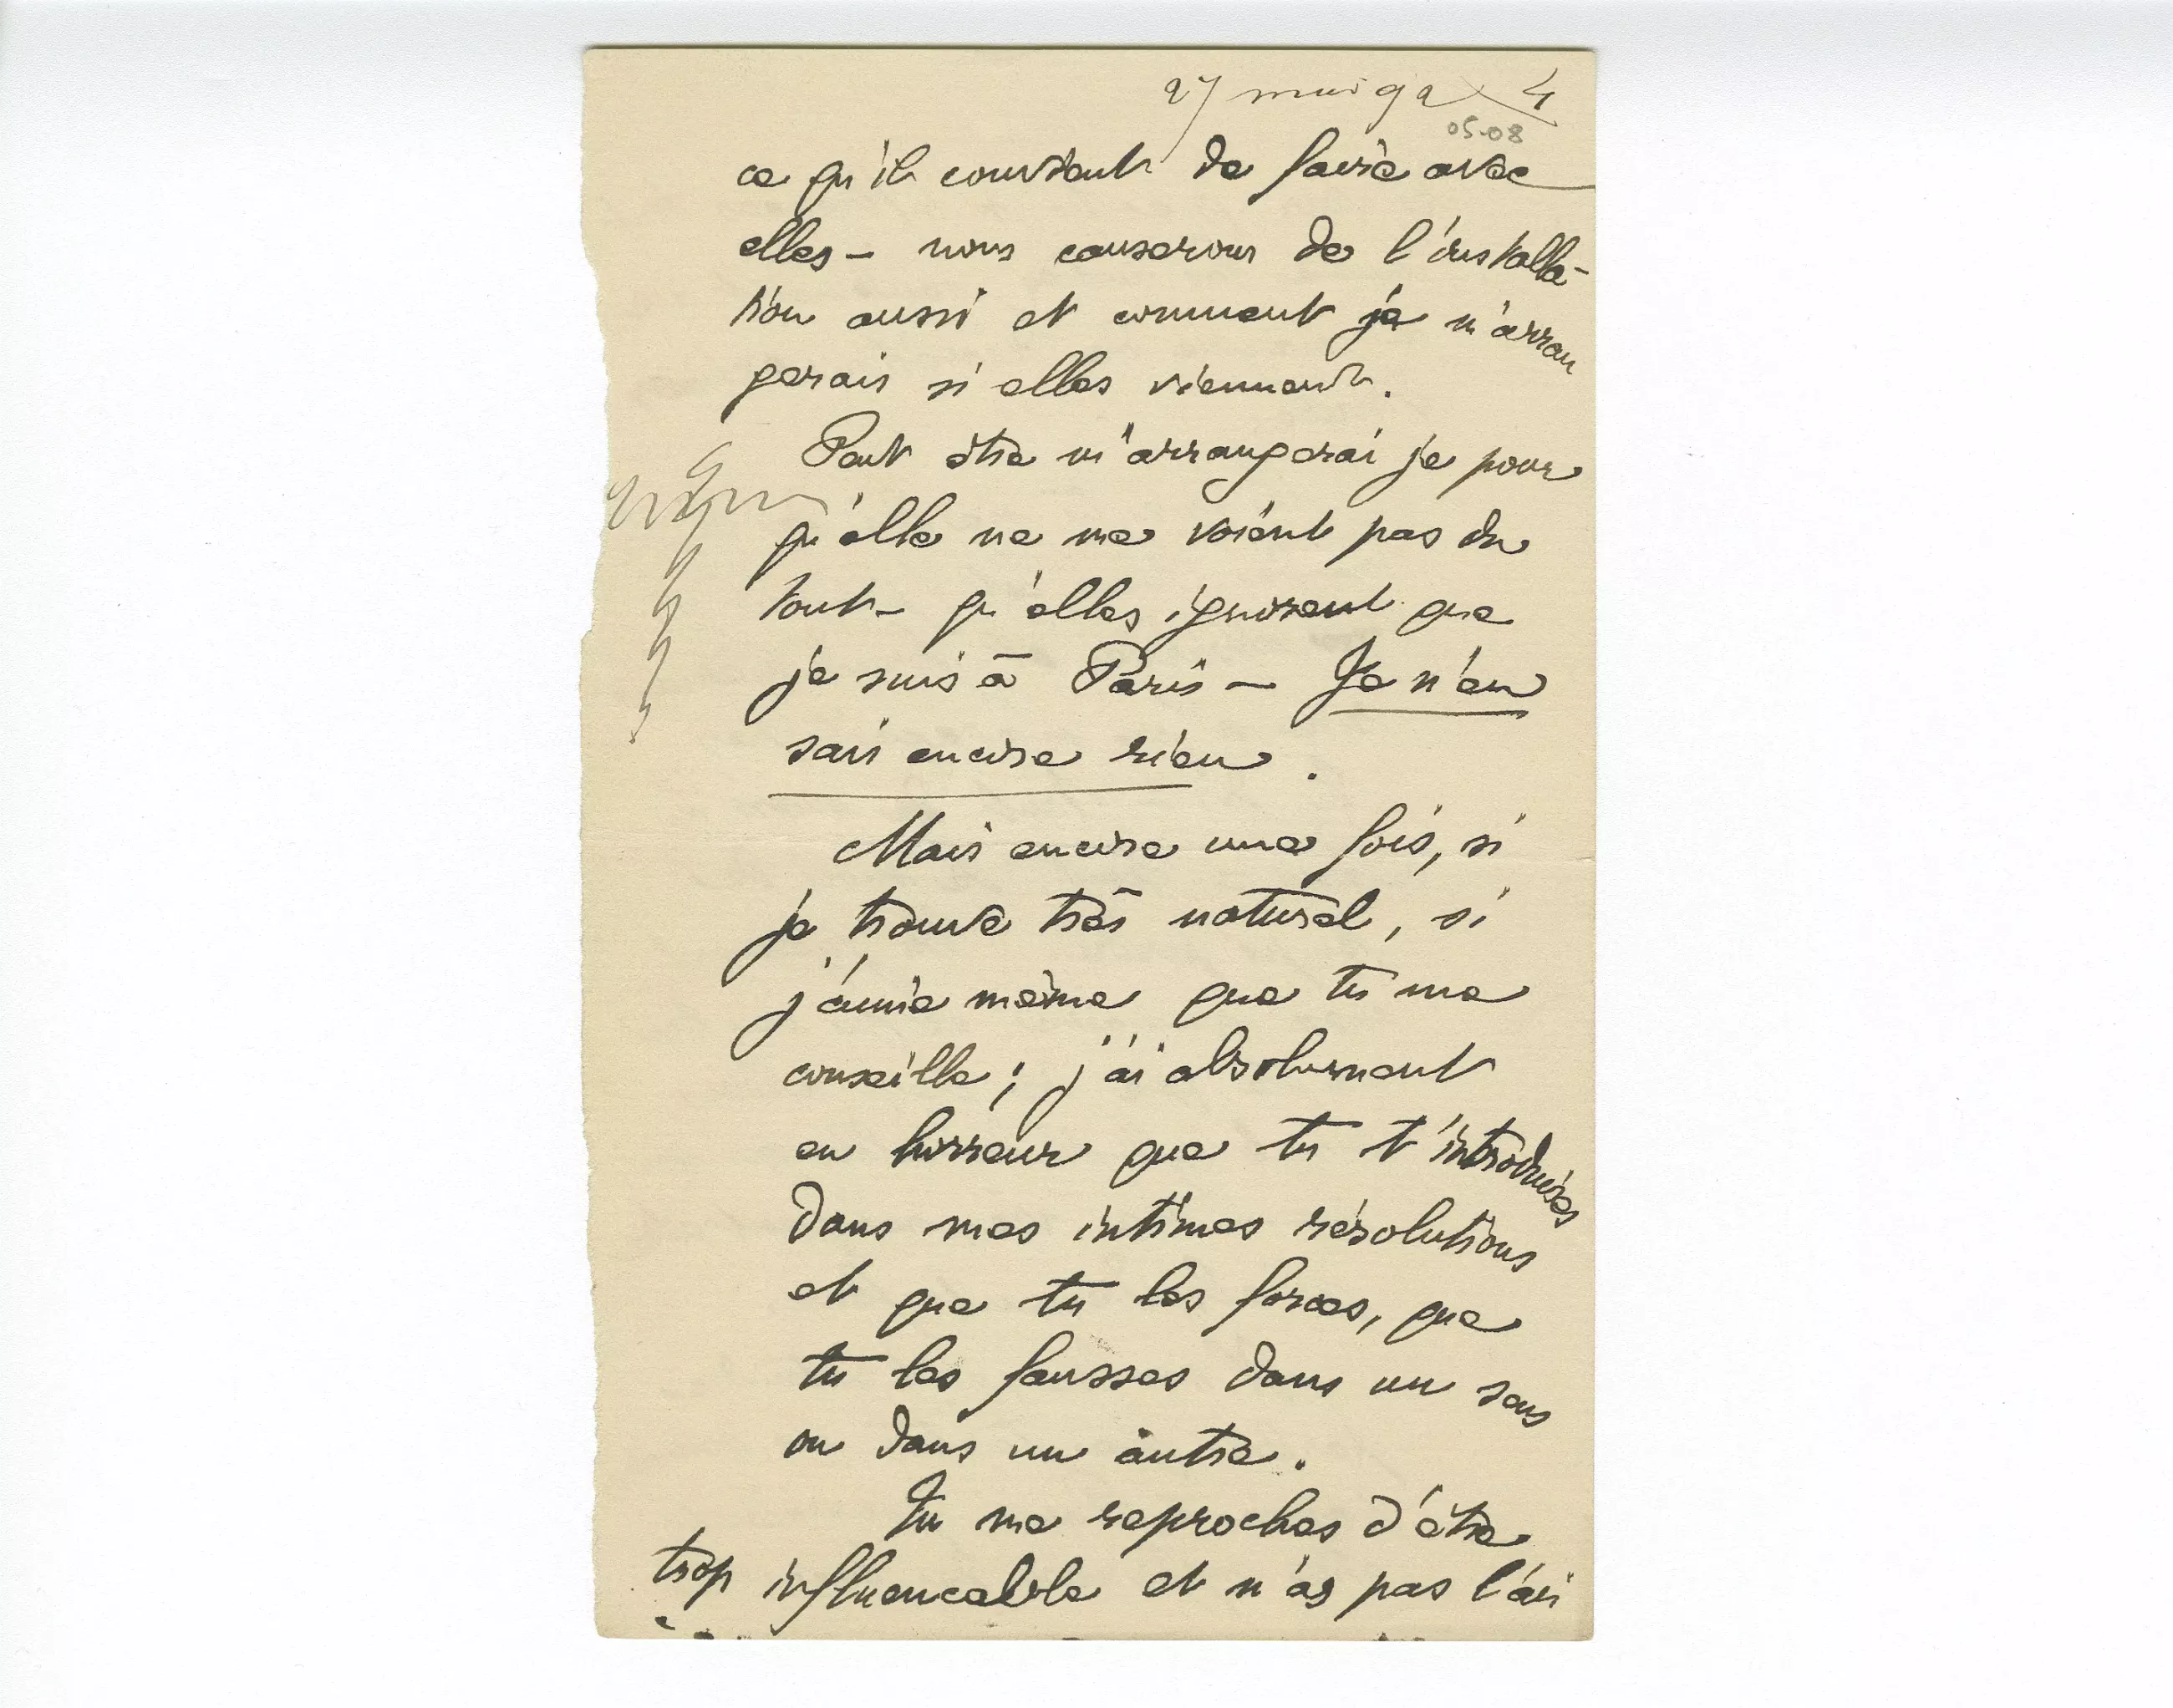 27 mai 92 4
05-08
ce qu'il convient de faire avec
elles — nous causerons de l'installa-
tion aussi et comment je m'arran
gerais si elles viennent.
Peut être m'arrangerai je pour
qu'elle ne me voient pas du
tout — qu'elles ignorent que
je suis à Paris — Je n'en
sais encore rien.
Mais encore une fois, si
je trouve très naturel, si
j'aime même que tu me
conseille ; j'ai absolument
en horreur que tu t'introduises
dans mes intimes résolutions
et que tu les forces, que
tu les fausses dans un sens
ou dans un autre.
Tu me reproches d'être
trop influencable et n'as pas l'air